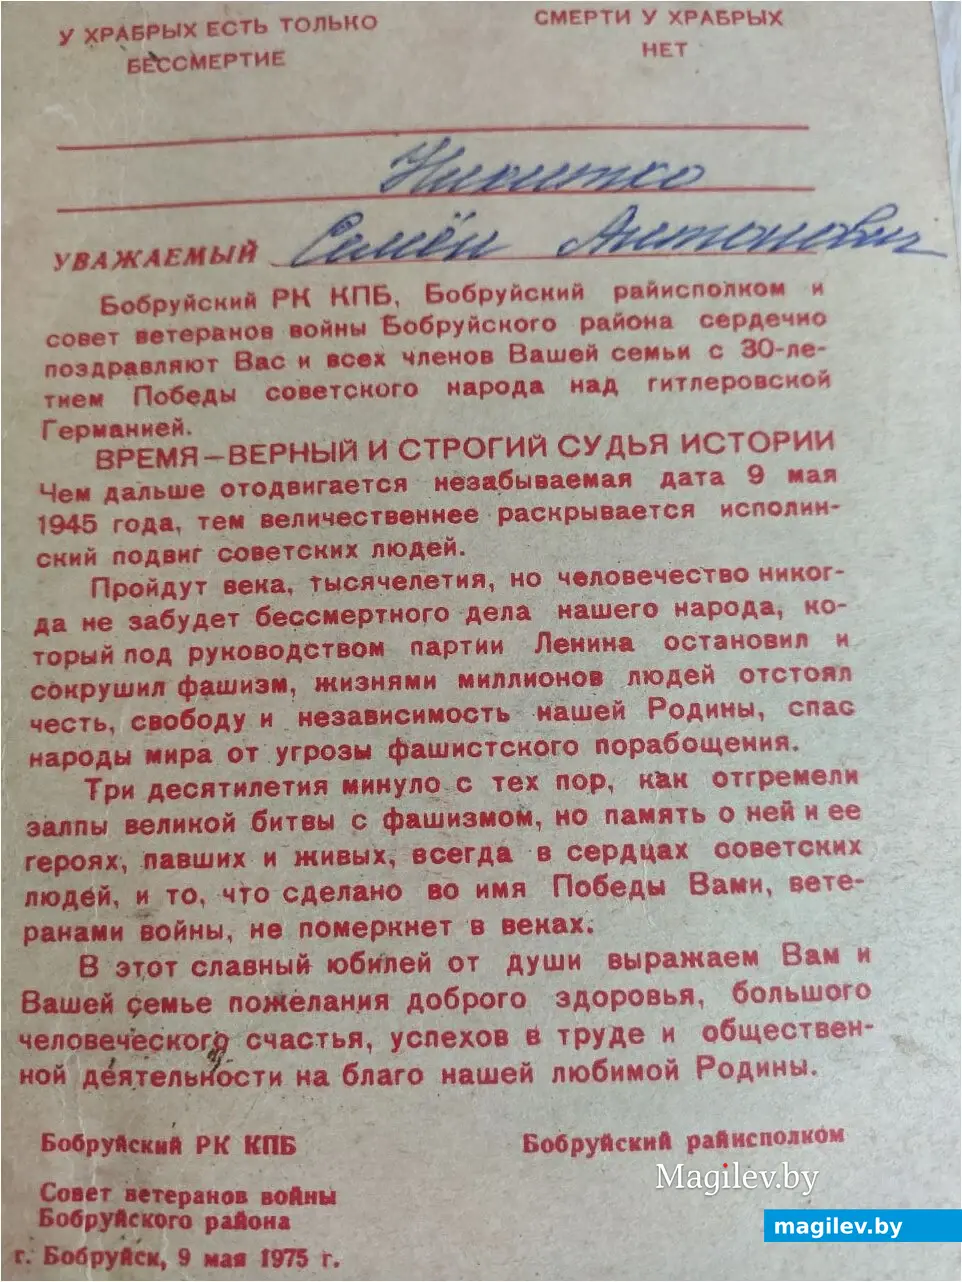 У ХРАБРЫХ ЕСТЬ ТОЛЬКО
БЕССМЕРТИЕ
СМЕРТИ У ХРАБРЫХ
НЕТ
Никитко
УВАЖАЕМЫЙ Семён Антонович
Бобруйский РК КПБ, Бобруйский райисполком и
совет ветеранов войны Бобруйского района сердечно
поздравляют Вас и всех членов Вашей семьи с 30-ле-
тием Победы советского народа над гитлеровской
Германией.
ВРЕМЯ — ВЕРНЫЙ И СТРОГИЙ СУДЬЯ ИСТОРИИ
Чем дальше отодвигается незабываемая дата 9 мая
1945 года, тем величественнее раскрывается исполин-
ский подвиг советских людей.
Пройдут века, тысячелетия, но человечество никог-
да не забудет бессмертного дела нашего народа, ко-
торый под руководством партии Ленина остановил и
сокрушил фашизм, жизнями миллионов людей отстоял
честь, свободу и независимость нашей Родины, спас
народы мира от угрозы фашистского порабощения.
Три десятилетия минуло с тех пор, как отгремели
залпы великой битвы с фашизмом, но память о ней и ее
героях, павших и живых, всегда в сердцах советских
людей, и то, что сделано во имя Победы Вами, вете-
ранами войны, не померкнет в веках.
В этот славный юбилей от души выражаем Вам и
Вашей семье пожелания доброго здоровья, большого
человеческого счастья, успехов в труде и обществен-
ной деятельности на благо нашей любимой Родины.
Бобруйский РК КПБ
Бобруйский райисполком
Совет ветеранов войны
Бобруйского района
г. Бобруйск, 9 мая 1975 г.
Magilev.by
magilev.by